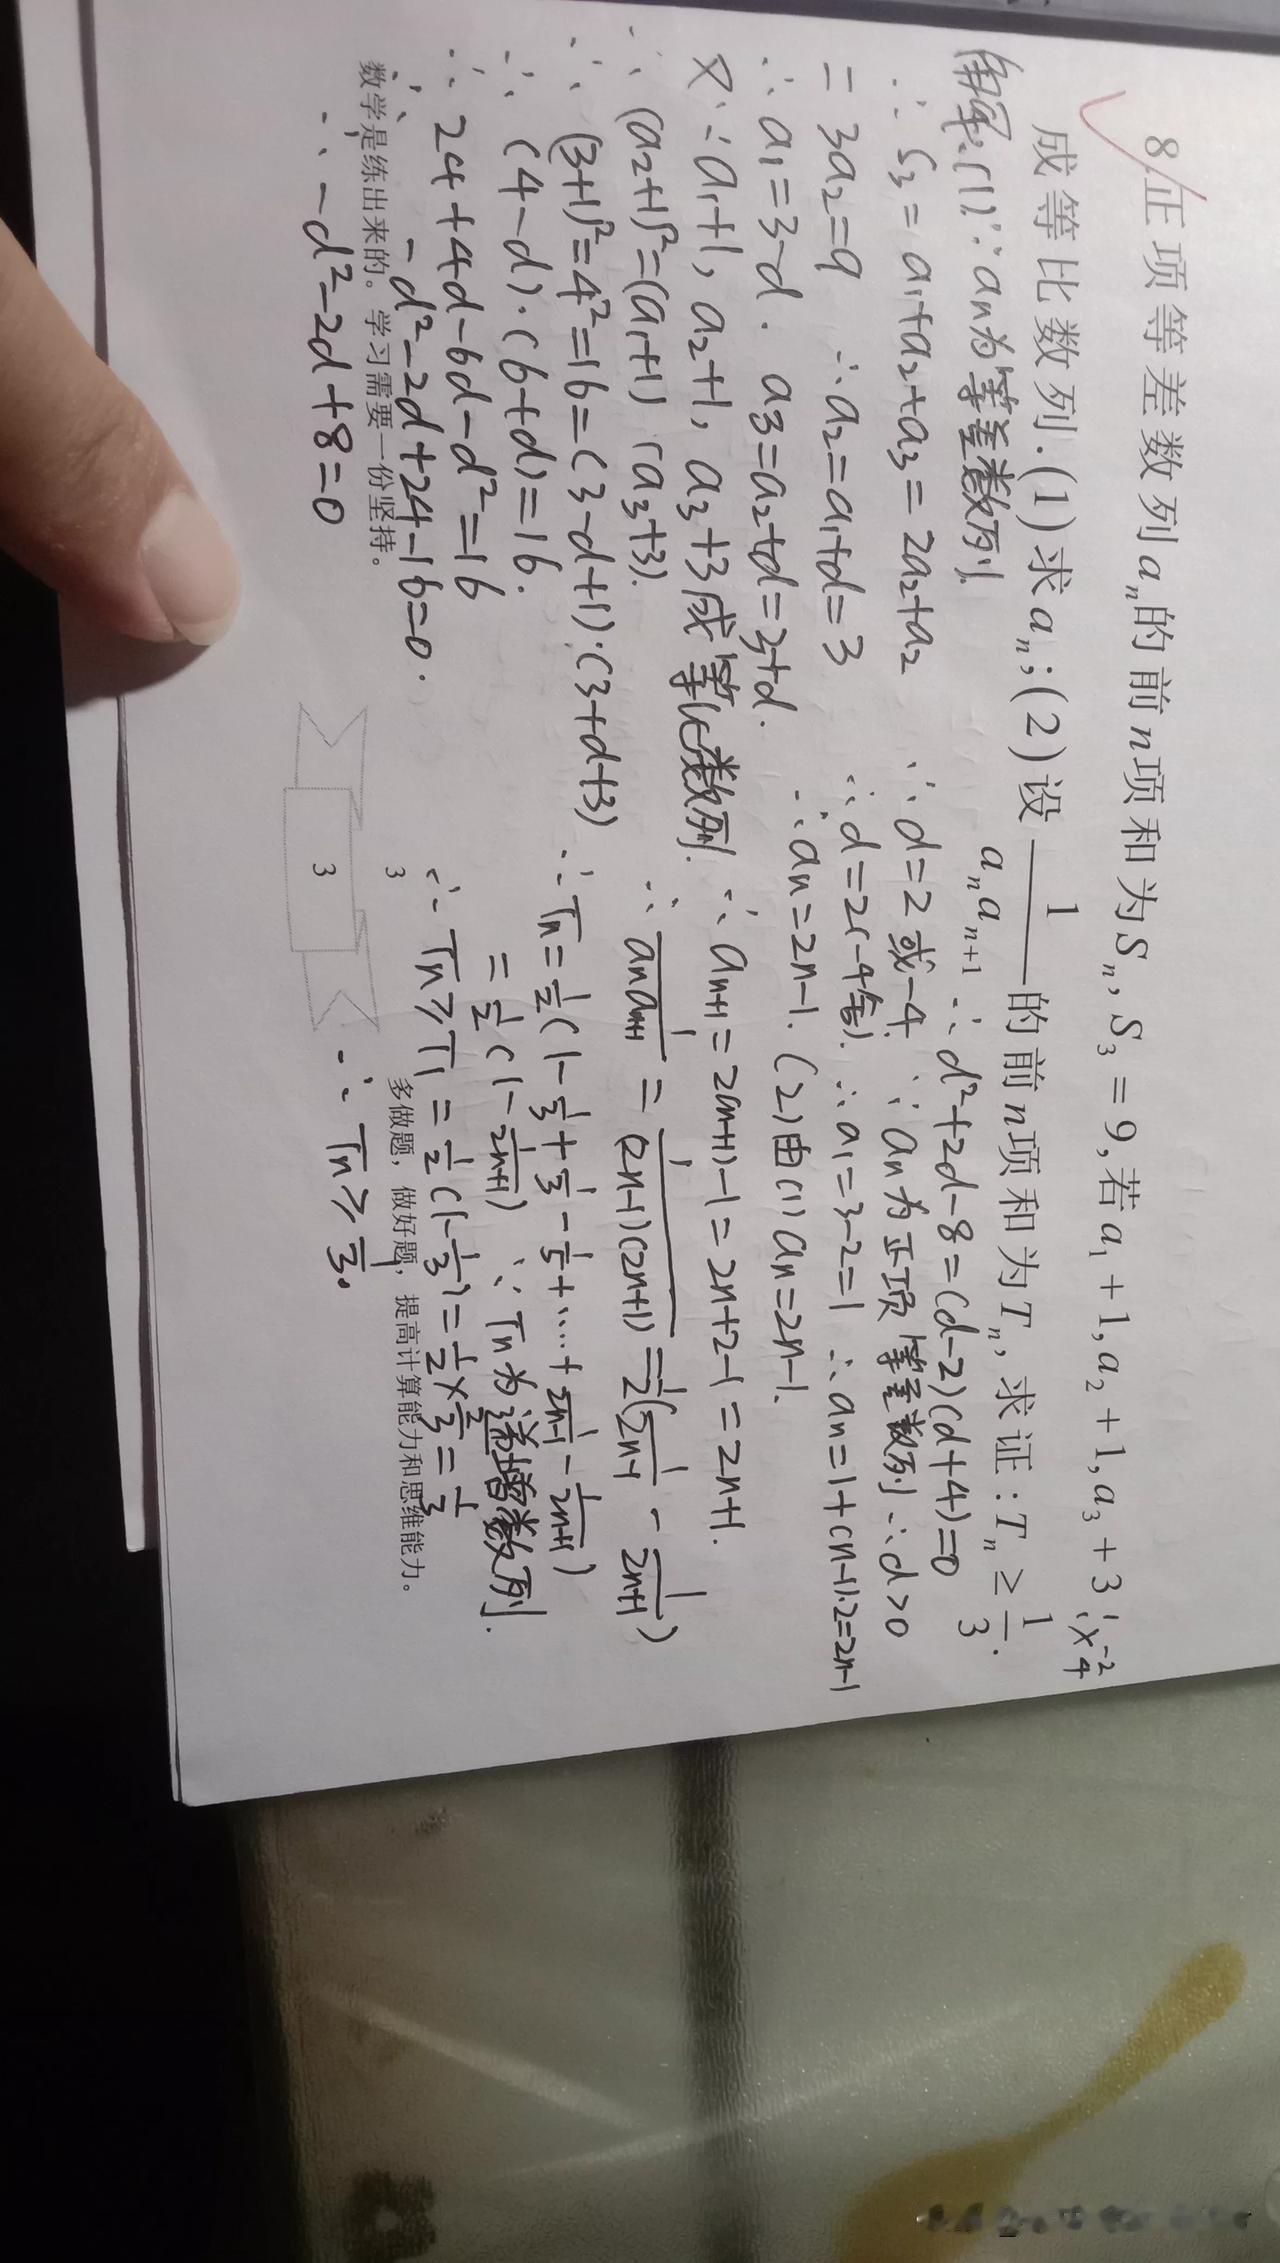 8.正项等差数列aₙ的前n项和为Sₙ, S₃=9,若a₁+1,a₂+1,a₃+3
成等比数列.(1)求aₙ;(2)设1/(aₙaₙ₊₁)的前n项和为Tₙ,求证:Tₙ≥1/3.
1 -2
1 × 4
解:(1)∵aₙ为等差数列.
∴S₃=a₁+a₂+a₃=2a₂+a₂
=3a₂=9 ∴a₂=a₁+d=3
∴a₁=3-d. a₃=a₂+d=3+d.
又∵a₁+1, a₂+1, a₃+3成等比数列.
∴(a₂+1)²=(a₁+1)(a₃+3).
∴(3+1)²=4²=16=(3-d+1)·(3+d+3)
∴(4-d)·(6+d)=16.
∴24+4d-6d-d²=16
∴-d²-2d+24-16=0.
∴-d²-2d+8=0
∴d²+2d-8=(d-2)(d+4)=0
∴d=2或-4. ∵aₙ为正项等差数列∴d>0
∴d=2(-4舍). ∴a₁=3-2=1 ∴aₙ=1+(n-1)·2=2n-1
∴aₙ=2n-1. (2)由(1)aₙ=2n-1.
∴aₙ₊₁=2(n+1)-1=2n+2-1=2n+1.
∴1/(aₙaₙ₊₁)=1/((2n-1)(2n+1))=1/2(1/(2n-1)-1/(2n+1))
∴Tₙ=1/2(1-1/3+1/3-1/5+....+1/(2n-1)-1/(2n+1))
=1/2(1-1/(2n+1)) ∵Tₙ为递增数列.
∴Tₙ≥T₁=1/2(1-1/3)=1/2×2/3=1/3
∴Tₙ≥1/3.
数学是练出来的。学习需要一份坚持。
3
多做题,做好题,提高计算能力和思维能力。
3